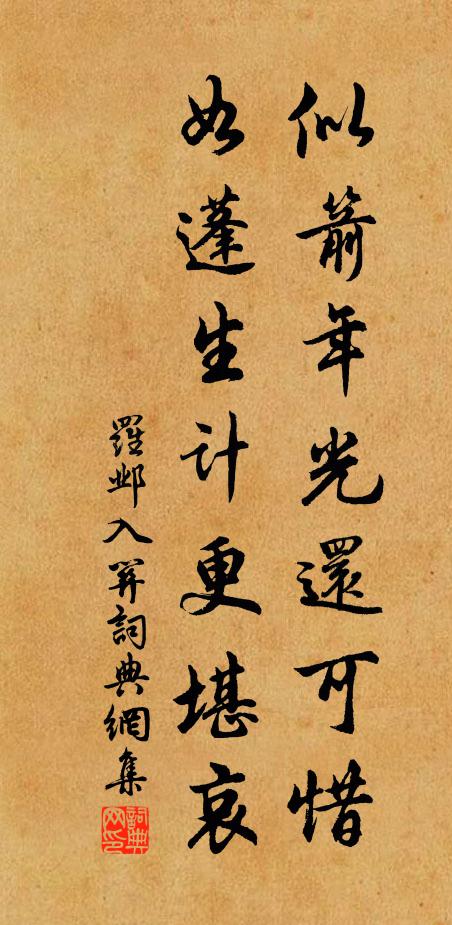 似箭年光還可惜
如蓬生计更堪哀
羅鄴入関詞典網集
詞典网印